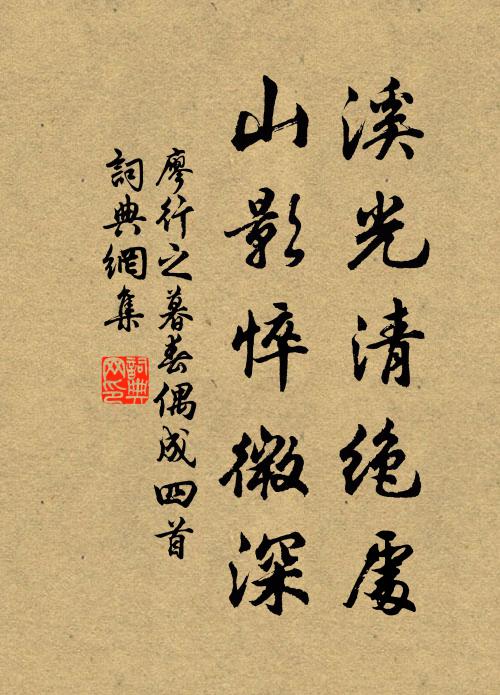 溪光清绝處
山影悴微深
廖行之暮春偶成四首
詞典網集
詞典
网印